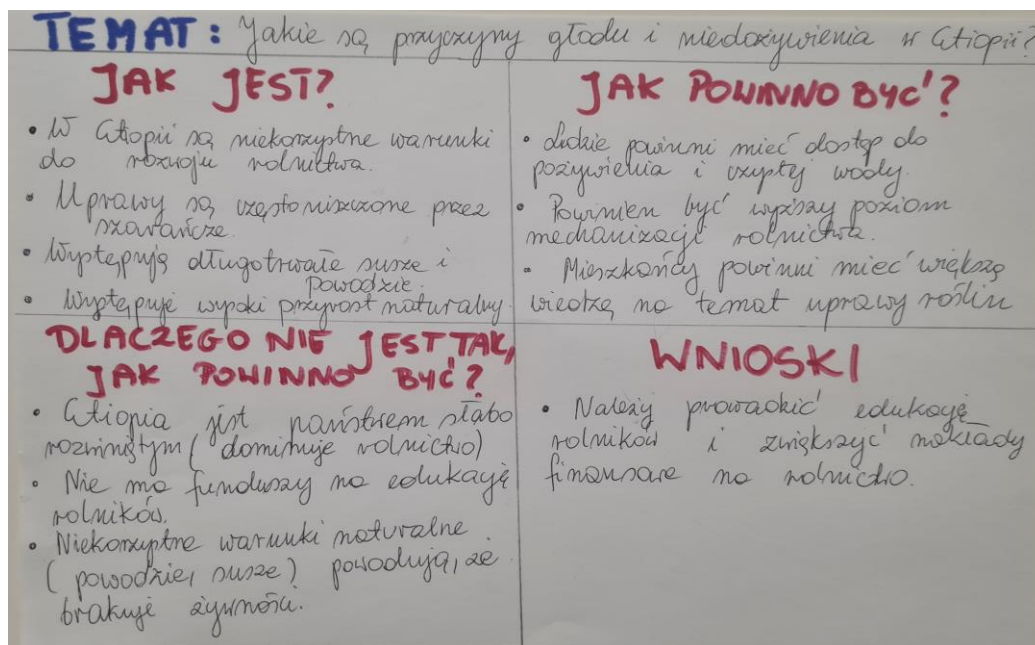 TEMAT: Jakie są przyczyny głodu i niedożywienia w Etiopii?
JAK JEST?
• W Etiopii są niekorzystne warunki
do rozwoju rolnictwa.
• Uprawy są często niszczone przez
szarańcze.
• Występują długotrwałe susze i
powodzie.
• Występuje wysoki przyrost naturalny.
JAK POWINNO BYĆ?
• Ludzie powinni mieć dostęp do
pożywienia i czystej wody.
• Powinien być wyższy poziom
mechanizacji rolnictwa.
• Mieszkańcy powinni mieć większą
wiedzę na temat uprawy roślin
DLACZEGO NIE JEST TAK,
JAK POWINNO BYĆ?
• Etiopia jest państwem słabo
rozwiniętym (dominuje rolnictwo)
• Nie ma funduszy na edukację
rolników.
• Niekorzystne warunki naturalne
(powodzie, susze) powodują, że
brakuje żywności.
WNIOSKI
• Należy prowadzić edukację
rolników i zwiększyć nakłady
finansowe na rolnictwo.